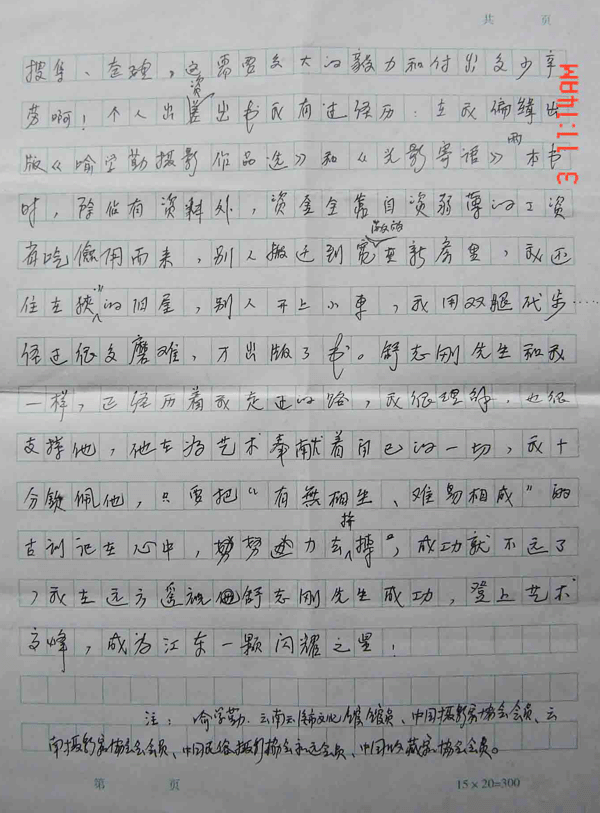 共 页
搜集、查理，这需要多大的毅力和付出多少辛
资
劳啊！个人出差出书我有过经历：在我编缉出
版《喻学勤摄影作品选》和《光影寄语》本书
两
时，除占有资料外，资金全靠自资弱薄的工资
省吃俭用而来，别人搬迁到宽 新房里，我还
敞的
住在狭的旧屋，别人开上小车，我用双腿代步……
经过很多磨难，才出版了书。舒志刚先生和我
一样，正经历着我走过的路，我很理解，也很
支撑他，他在为艺术奉献着自己的一切，我十
分钦佩他，只要把“有無相生、难易相成”的
古训记在心中，努力去搏，成功就不远了
拚
，我在远方遥祝舒志刚先生成功，登上艺术
高峰，成为江东一颗闪耀之星！
注：喻学勤．云南云锡文化馆馆员、中国摄影家协会会员、云
南摄影家协会会员、中国民俗摄影协会永远会员、中国收藏家协会会员。
第 页
15×20=300
3 11:14AM